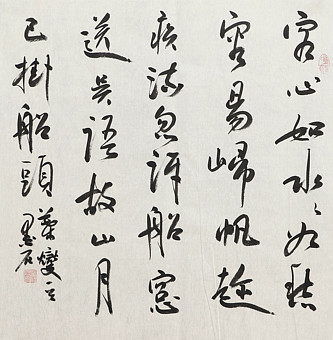 客心如水々如愁
容易歸帆趁
疾流忽訝船窗
送吳語故山月
已掛船頭
葉燮
墨石